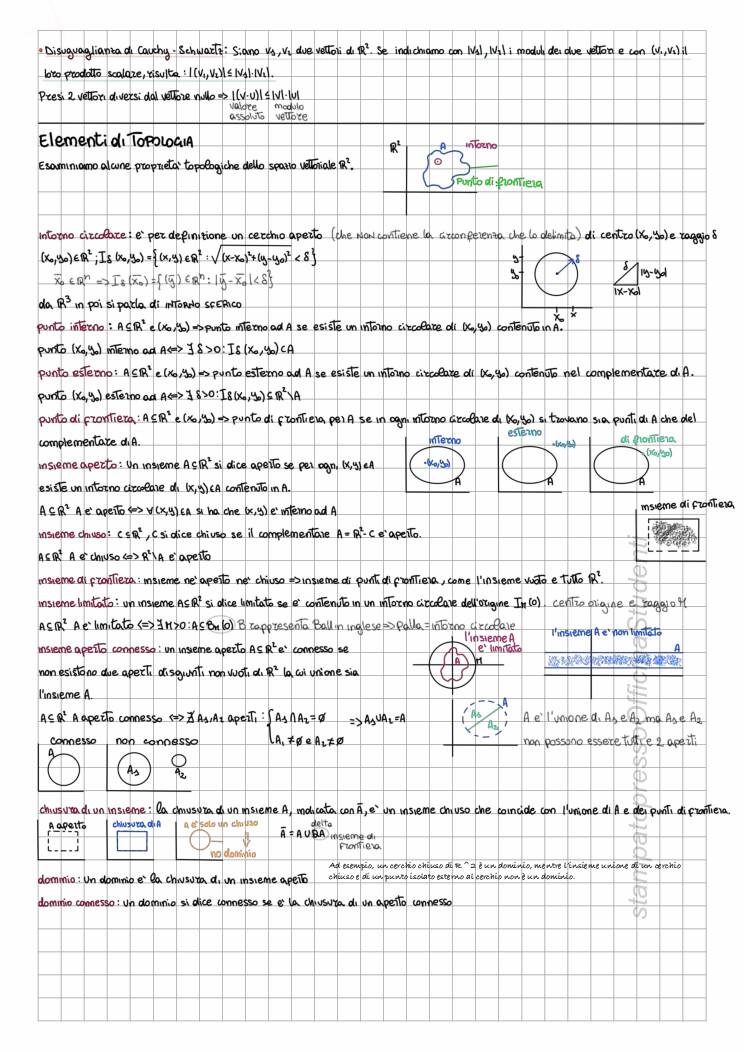 • Disuguaglianza di Cauchy-Schwartz: Siano v₁, v₂ due vettori di ℝ². Se indichiamo con |v₁|, |v₂| i moduli dei due vettori e con (v₁,v₂) il
loro prodotto scalare, risulta: |(v₁,v₂)| ≤ |v₁|·|v₂|.
Presi 2 vettori diversi dal vettore nullo => |(v·u)| ≤ |v|·|u|
valore assoluto modulo vettore
Elementi di TOPOLOGIA
Esaminiamo alcune proprietà topologiche dello spazio vettoriale ℝ².
ℝ² A intorno
Punto di frontiera
intorno circolare: e' per definizione un cerchio aperto (che NON contiene la circonferenza che lo delimita) di centro (x₀,y₀) e raggio δ
(x₀,y₀) ∈ ℝ²; Iδ (x₀,y₀) = {(x,y) ∈ ℝ²: √(x-x₀)²+(y-y₀)² < δ}
x̄₀ ∈ ℝⁿ => Iδ (x̄₀) = {(ȳ) ∈ ℝⁿ: |ȳ-x̄₀| < δ}
y y₀ δ x₀ x
δ |y-y₀| |x-x₀|
da ℝ³ in poi si parla di INTORNO SFERICO
punto interno: A⊆ℝ² e (x₀,y₀) => punto interno ad A se esiste un intorno circolare di (x₀,y₀) contenuto in A.
punto (x₀,y₀) interno ad A <=> ∃ δ>0: Iδ (x₀,y₀) ⊂ A
punto esterno: A⊆ℝ² e (x₀,y₀) => punto esterno ad A se esiste un intorno circolare di (x₀,y₀) contenuto nel complementare di A.
punto (x₀,y₀) esterno ad A <=> ∃ δ>0: Iδ (x₀,y₀) ⊆ ℝ²\A
punto di frontiera: A⊆ℝ² e (x₀,y₀) => punto di frontiera per A se in ogni intorno circolare di (x₀,y₀) si trovano sia punti di A che del
complementare di A.
interno •(x₀,y₀) A
esterno •(x₀,y₀) A
di frontiera (x₀,y₀) A
insieme aperto: Un insieme A⊆ℝ² si dice aperto se per ogni (x,y) ∈ A
esiste un intorno circolare di (x,y) ∈ A contenuto in A.
A⊆ℝ² A e' aperto <=> ∀(x,y) ∈ A si ha che (x,y) e' interno ad A
insieme di frontiera
insieme chiuso: C⊆ℝ², C si dice chiuso se il complementare A = ℝ²-C e' aperto.
A⊆ℝ² A e' chiuso <=> ℝ²\A e' aperto
insieme di frontiera: insieme ne' aperto ne' chiuso => insieme di punti di frontiera, come l'insieme vuoto e tutto ℝ².
insieme limitato: un insieme A⊆ℝ² si dice limitato se e' contenuto in un intorno circolare dell'origine I_M(0). centro origine e raggio M
A⊆ℝ² A e' limitato <=> ∃ M>0: A⊆B_M(0) B rappresenta Ball in inglese => Palla = intorno circolare
l'insieme A e' limitato A M
l'insieme A e' non limitato A
insieme aperto connesso: un insieme aperto A⊆ℝ² e' connesso se
non esistono due aperti disgiunti non vuoti di ℝ² la cui unione sia
l'insieme A.
A⊆ℝ² A aperto connesso <=> ∄ A₁,A₂ aperti: {A₁∩A₂=∅ A₁≠∅ e A₂≠∅ => A₁∪A₂=A
A A₁ A₂
A e' l'unione di A₁ e A₂ ma A₁ e A₂
non possono essere tutti e 2 aperti
connesso A
non connesso A₁ A₂
chiusura di un insieme: la chiusura di un insieme A, indicata con Ā, e' un insieme chiuso che coincide con l'unione di A e dei punti di frontiera.
A aperto
chiusura di A
A e' solo un chiuso
no dominio
Ā = A∪∂A
delta
insieme di frontiera
Ad esempio, un cerchio chiuso di R^2 è un dominio, mentre l'insieme unione di un cerchio
chiuso e di un punto isolato esterno al cerchio non è un dominio.
dominio: Un dominio e' la chiusura di un insieme aperto
dominio connesso: un dominio si dice connesso se e' la chiusura di un aperto connesso